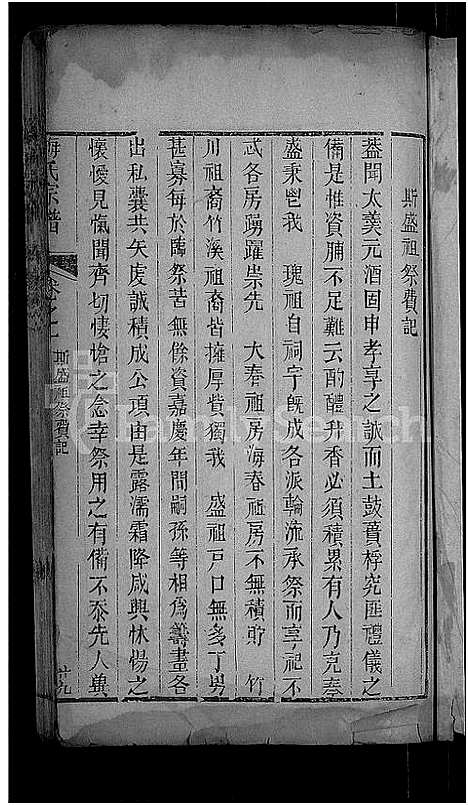 斯盛祖祭費記
蓋聞太羹元酒固申孝享之誠而土鼓蕢桴究匪禮儀之
備是惟資脯不足難云酌醴升香必須積累有人乃克奏
盛秉鬯我 瑰祖自祠宇既成各派輪流承祭而享祀不
忒各房踴躍崇先 大奉祖房海春祖房不無積貯 竹
川祖裔竹溪祖裔皆擁厚貲獨我 盛祖戶口無多丁男
甚寡每於薦祭苦無餘資嘉慶年間嗣孫等相為籌畫各
出私囊共矢虔誠積成公項由是露濡霜降咸興怵惕之
懷僾見愾聞齊切悽愴之念幸祭用之有備不忝先人冀
氏宗譜 卷之 斯盛祖祭費記 廿九